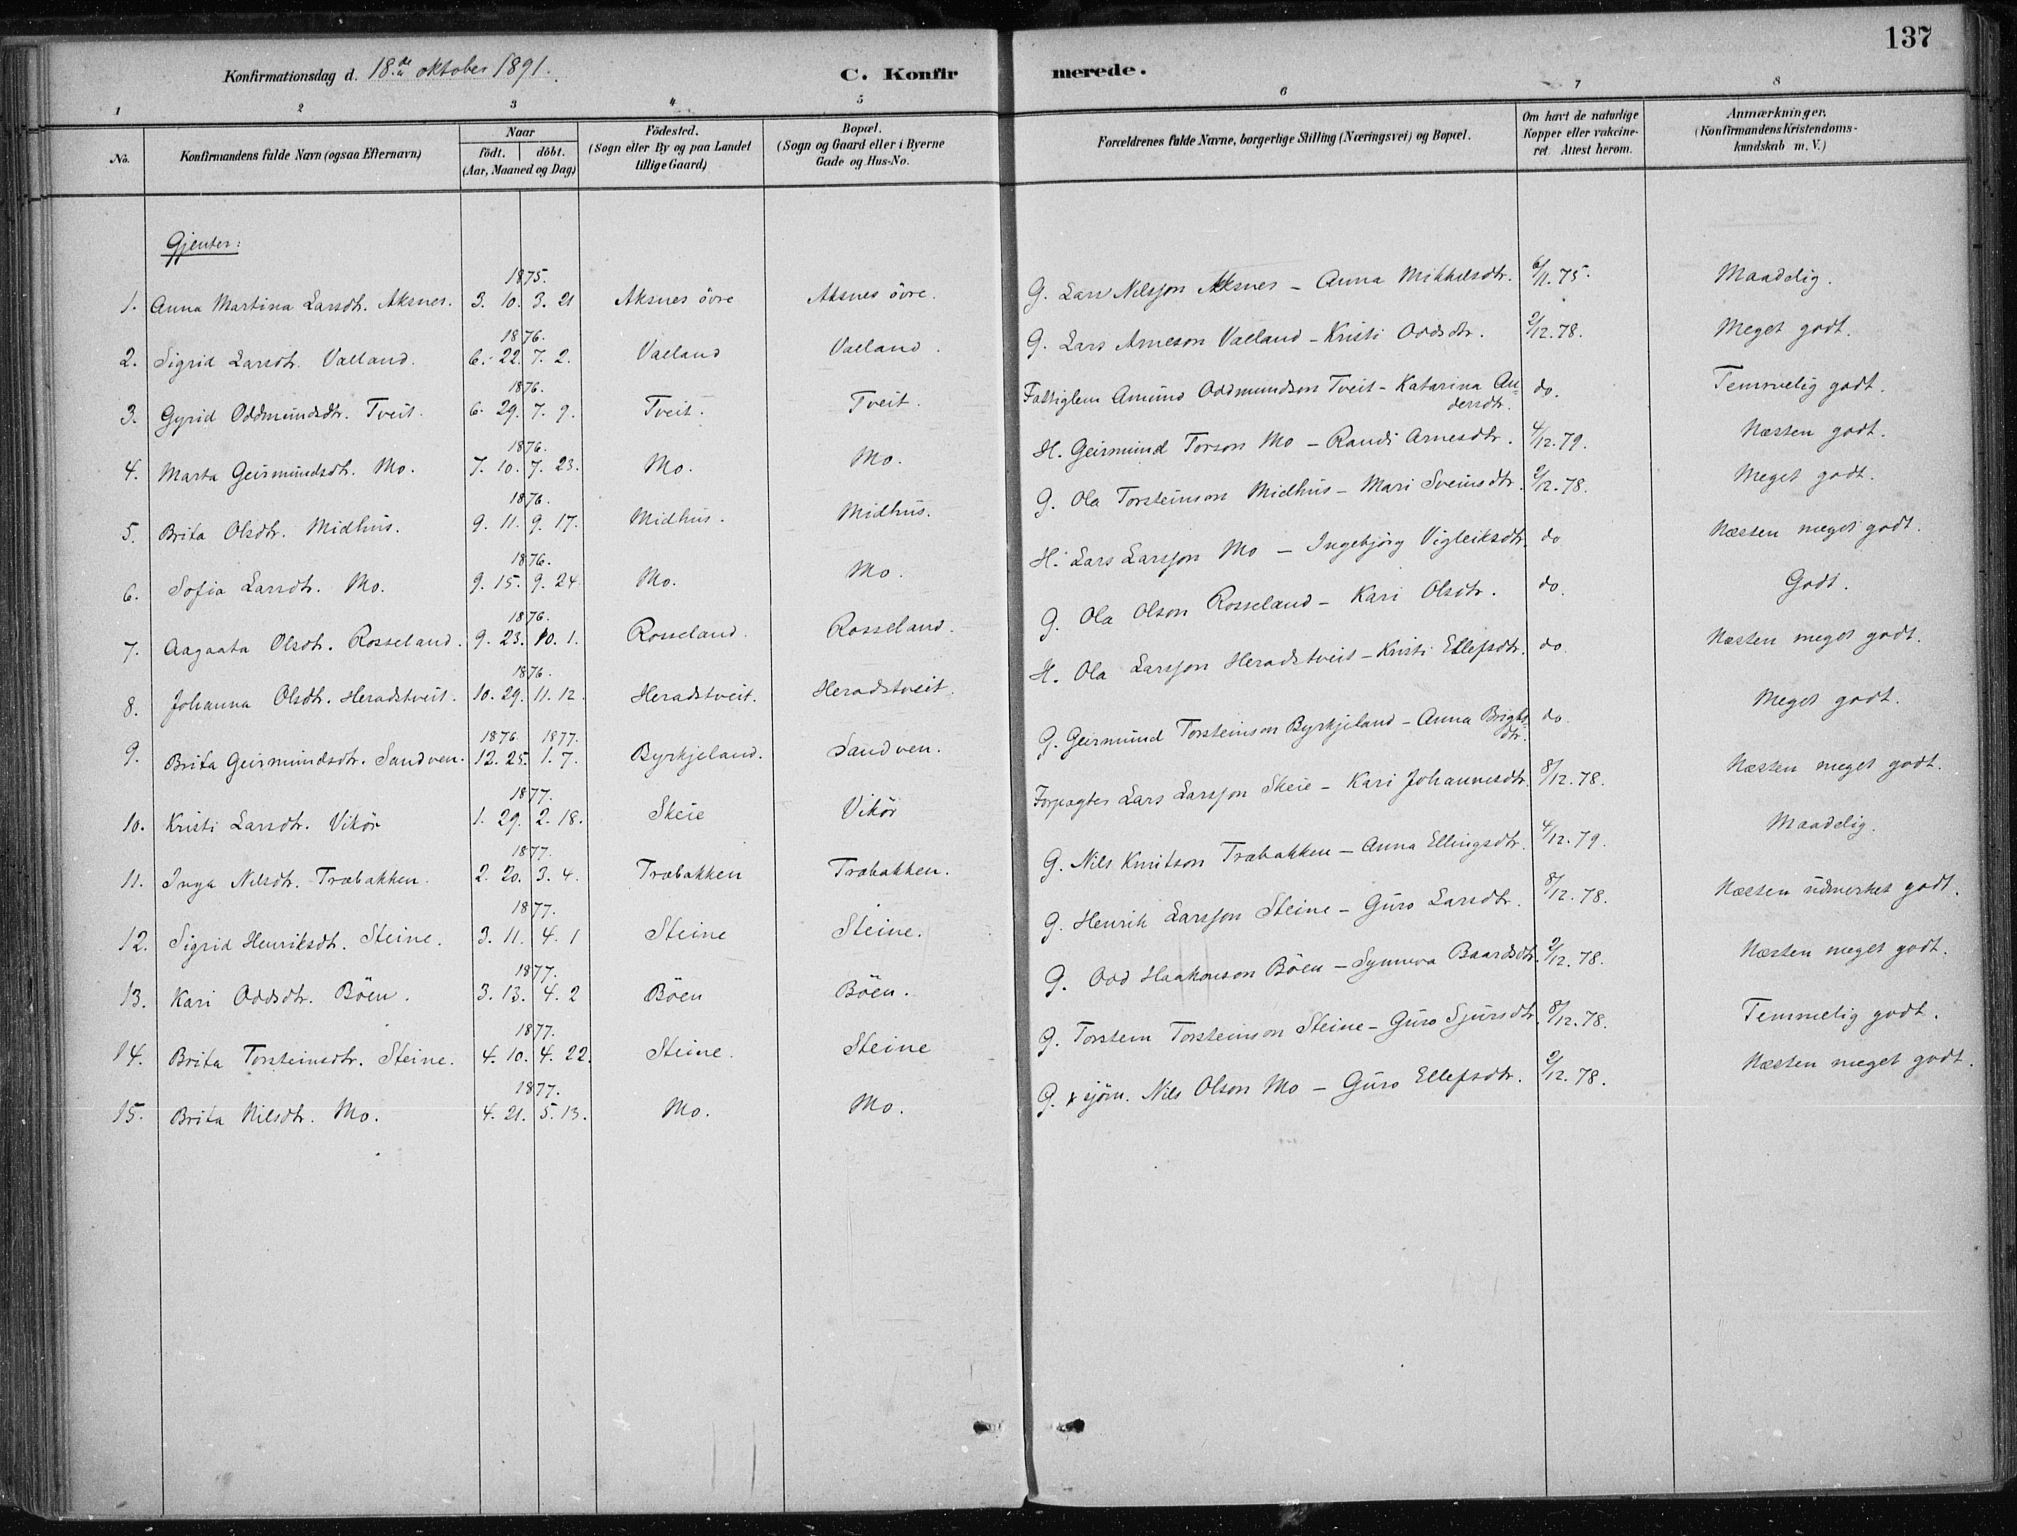 137
Konfirmationsdag d. 18de oktober 1891.
C. Konfirmerede.
1 2 3 4 5 6 7 8
No. Konfirmandens fulde Navn (ogsaa Efternavn) Naar födt. döbt. (Aar, Maaned og Dag) Födested. (Sogn eller By og paa Landet tillige Gaard) Bopæl. (Sogn og Gaard eller i Byerne Gade og Hus-No. Forældrenes fulde Navne, borgerlige Stilling (Næringsvei) og Bopæl. Om havt de naturlige Kopper eller vakcineret. Attest herom. Anmærkninger. (Konfirmandens Kristendomskundskab m. V.)
Gjenter:
1875.
1. Anna Martina Larsdt. Aksnes. 3. 10. 3. 21 Aksnes övre Aksnes övre. G. Lars Nilsson Aksnes – Anna Mikkelsdtr. 6/11.75. Maadelig.
1876.
2. Sigrid Larsdtr. Valland. 6. 22. 7. 2. Valland Valland. G. Lars Arneson Valland – Kristi Oddsdtr. 2/12.78. Meget godt.
1876.
3. Gyrid Oddmundsdtr. Tveit. 6. 29. 7. 9. Tveit. Tveit. Fattiglem Amund Oddmundson Tveit – Katarina Andersdtr. do. Temmelig godt.
1876.
4. Marta Geirmundsdtr. Mo. 7. 10. 7. 23. Mo. Mo. H. Geirmund Torson Mo – Randi Arnesdtr. 4/12.79. Næsten godt.
1876.
5. Brita Olsdtr. Midhus. 9. 11. 9. 17. Midhus. Midhus. G. Ola Torsteinson Midhus – Mari Sveinsdtr. 2/12.78. Meget godt.
1876.
6. Sofia Larsdtr. Mo. 9. 15. 9. 24 Mo. Mo. H. Lars Larsson Mo – Ingebjörg Vigleiksdtr. do Næsten meget godt.
1876.
7. Aagaata Olsdtr. Rosseland. 9. 23. 10. 1. Rosseland. Rosseland. G. Ola Olson Rosseland – Kari Olsdtr. do. Godt.
1876.
8. Johanna Olsdtr. Heradstveit. 10. 29. 11. 12. Heradstveit. Heradstveit. H. Ola Larsson Heradstveit – Kristi Ellefsdtr. do Næsten meget godt.
1876. 1877.
9. Brita Geirmundsdtr. Sandven. 12. 25. 1. 7. Byrkjeland. Sandven. G. Geirmund Torsteinson Byrkjeland – Anna Brigtsdtr. do. Meget godt.
1877.
10. Kristi Larsdtr. Vikör 1. 29. 2. 18. Skeie Vikör Forpagter Lars Larsson Skeie – Kari Johannesdtr. 8/12.78. Næsten meget godt.
1877.
11. Inga Nilsdtr. Træbakken. 2. 20. 3. 4. Træbakken Træbakken. G. Nils Knutson Træbakken – Anna Ellingsdtr. 4/12.79. Maadelig.
1877.
12. Sigrid Henriksdtr. Steine. 3. 11. 4. 1 Steine Steine. G. Henrik Larsson Steine – Guro Larsdtr. 8/12.78. Næsten udmerket godt.
1877.
13. Kari Oddsdtr. Böen. 3. 13. 4. 2 Böen Böen. G. Odd Haakonson Böen – Synneva Baardsdtr. 2/12.78. Næsten meget godt.
1877.
14. Brita Torsteinsdtr. Steine. 4. 10. 4. 22. Steine. Steine G. Torstein Torsteinson Steine – Guro Sjursdtr. 8/12.78. Temmelig godt.
1877.
15. Brita Nilsdtr. Mo. 4. 21. 5. 13. Mo. Mo. G. & sjöm. Nils Olson Mo – Guro Ellefsdtr. 2/12.78. Næsten meget godt.